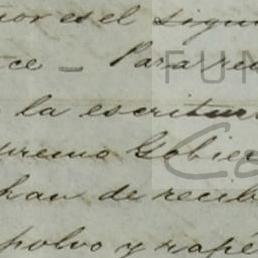 es el sigui
ce — Para re
la escritur
premo Gobie
han de recib
polvo y rapé
FUN